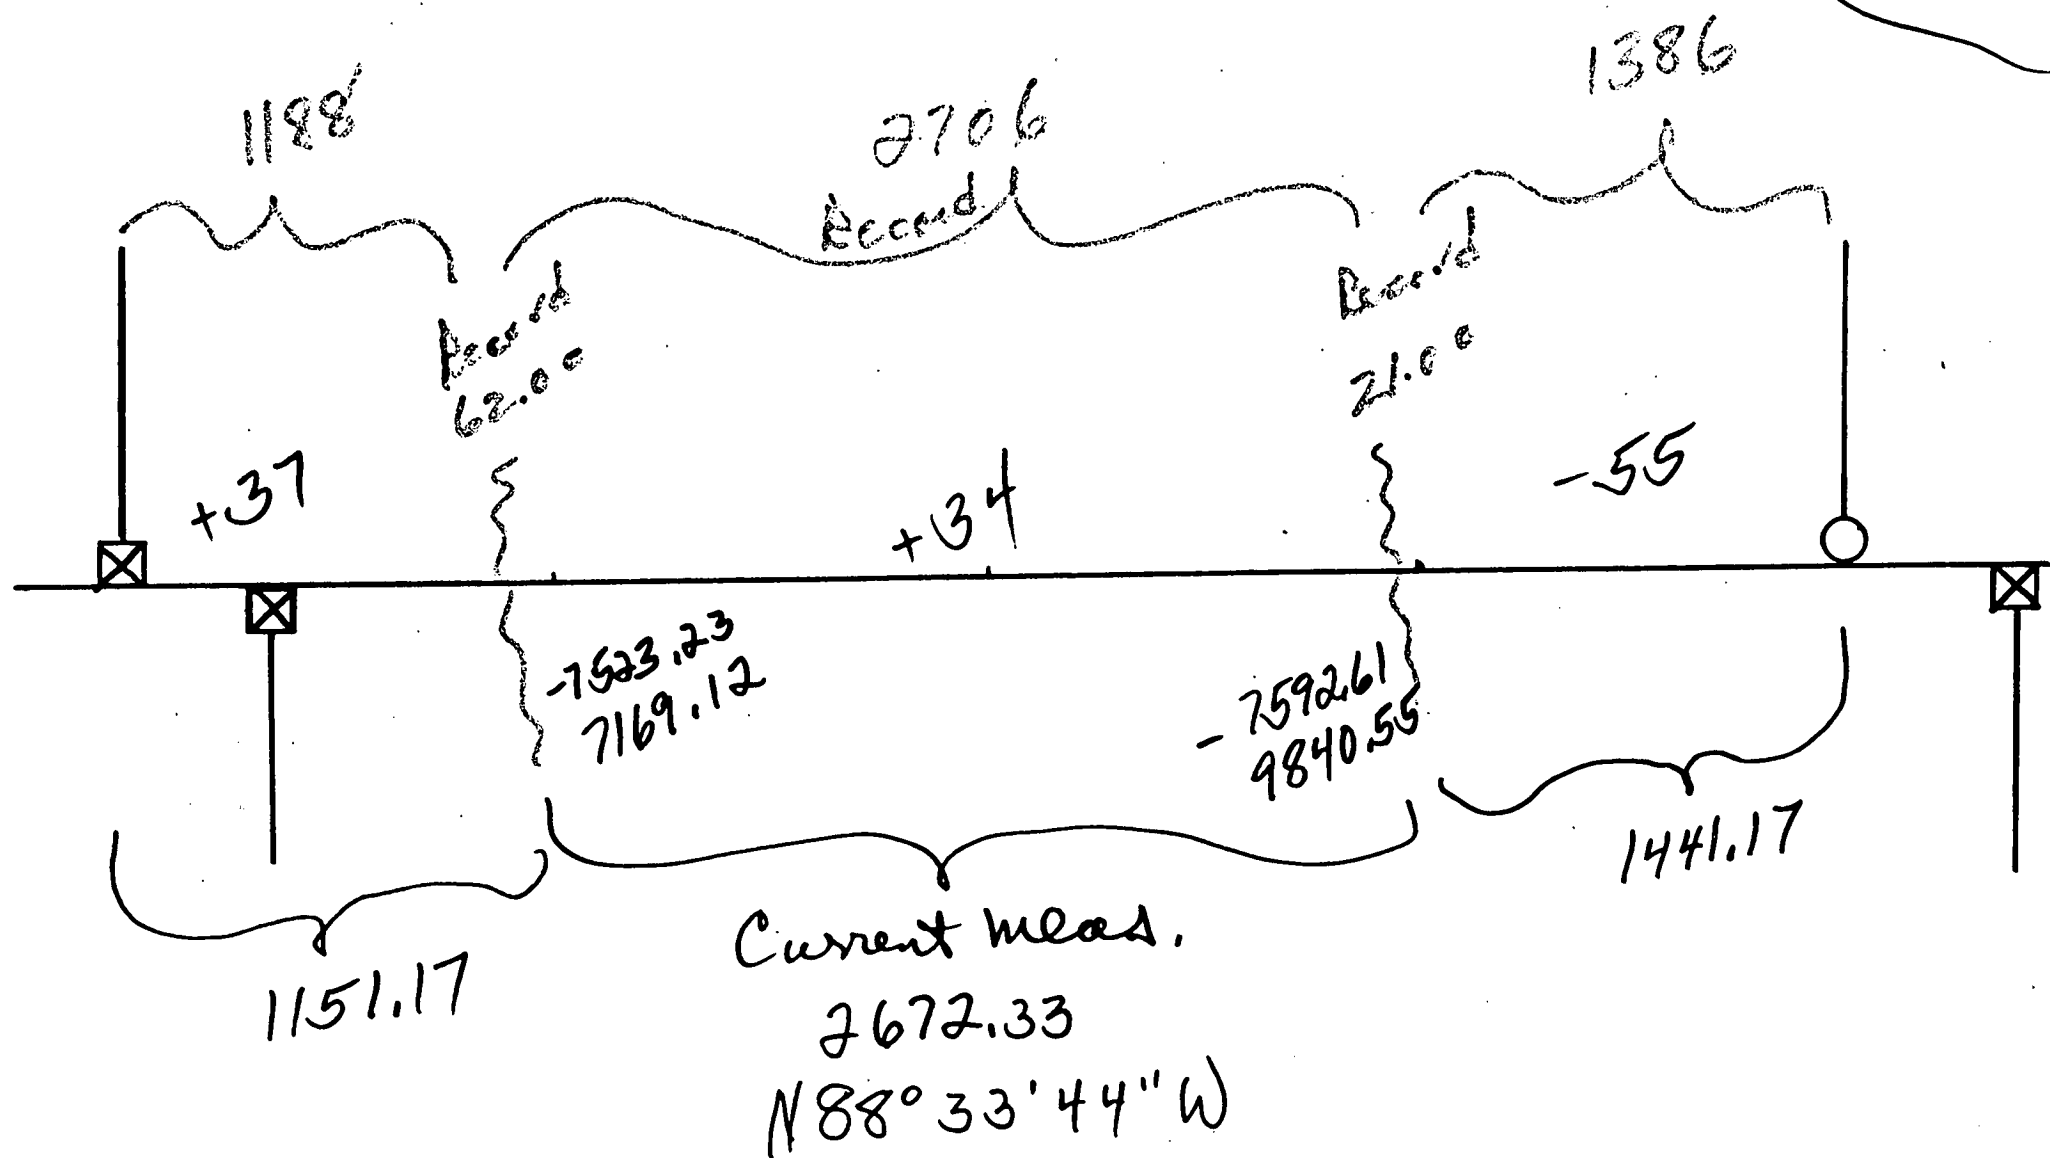 1188'
2706
1386
Record
Record
62.00
Record
21.00
+37
+34
-55
-7523.23
7169.12
-7592.61
9840.55
1151.17
1441.17
Current Meas.
2672.33
N88°33'44"W